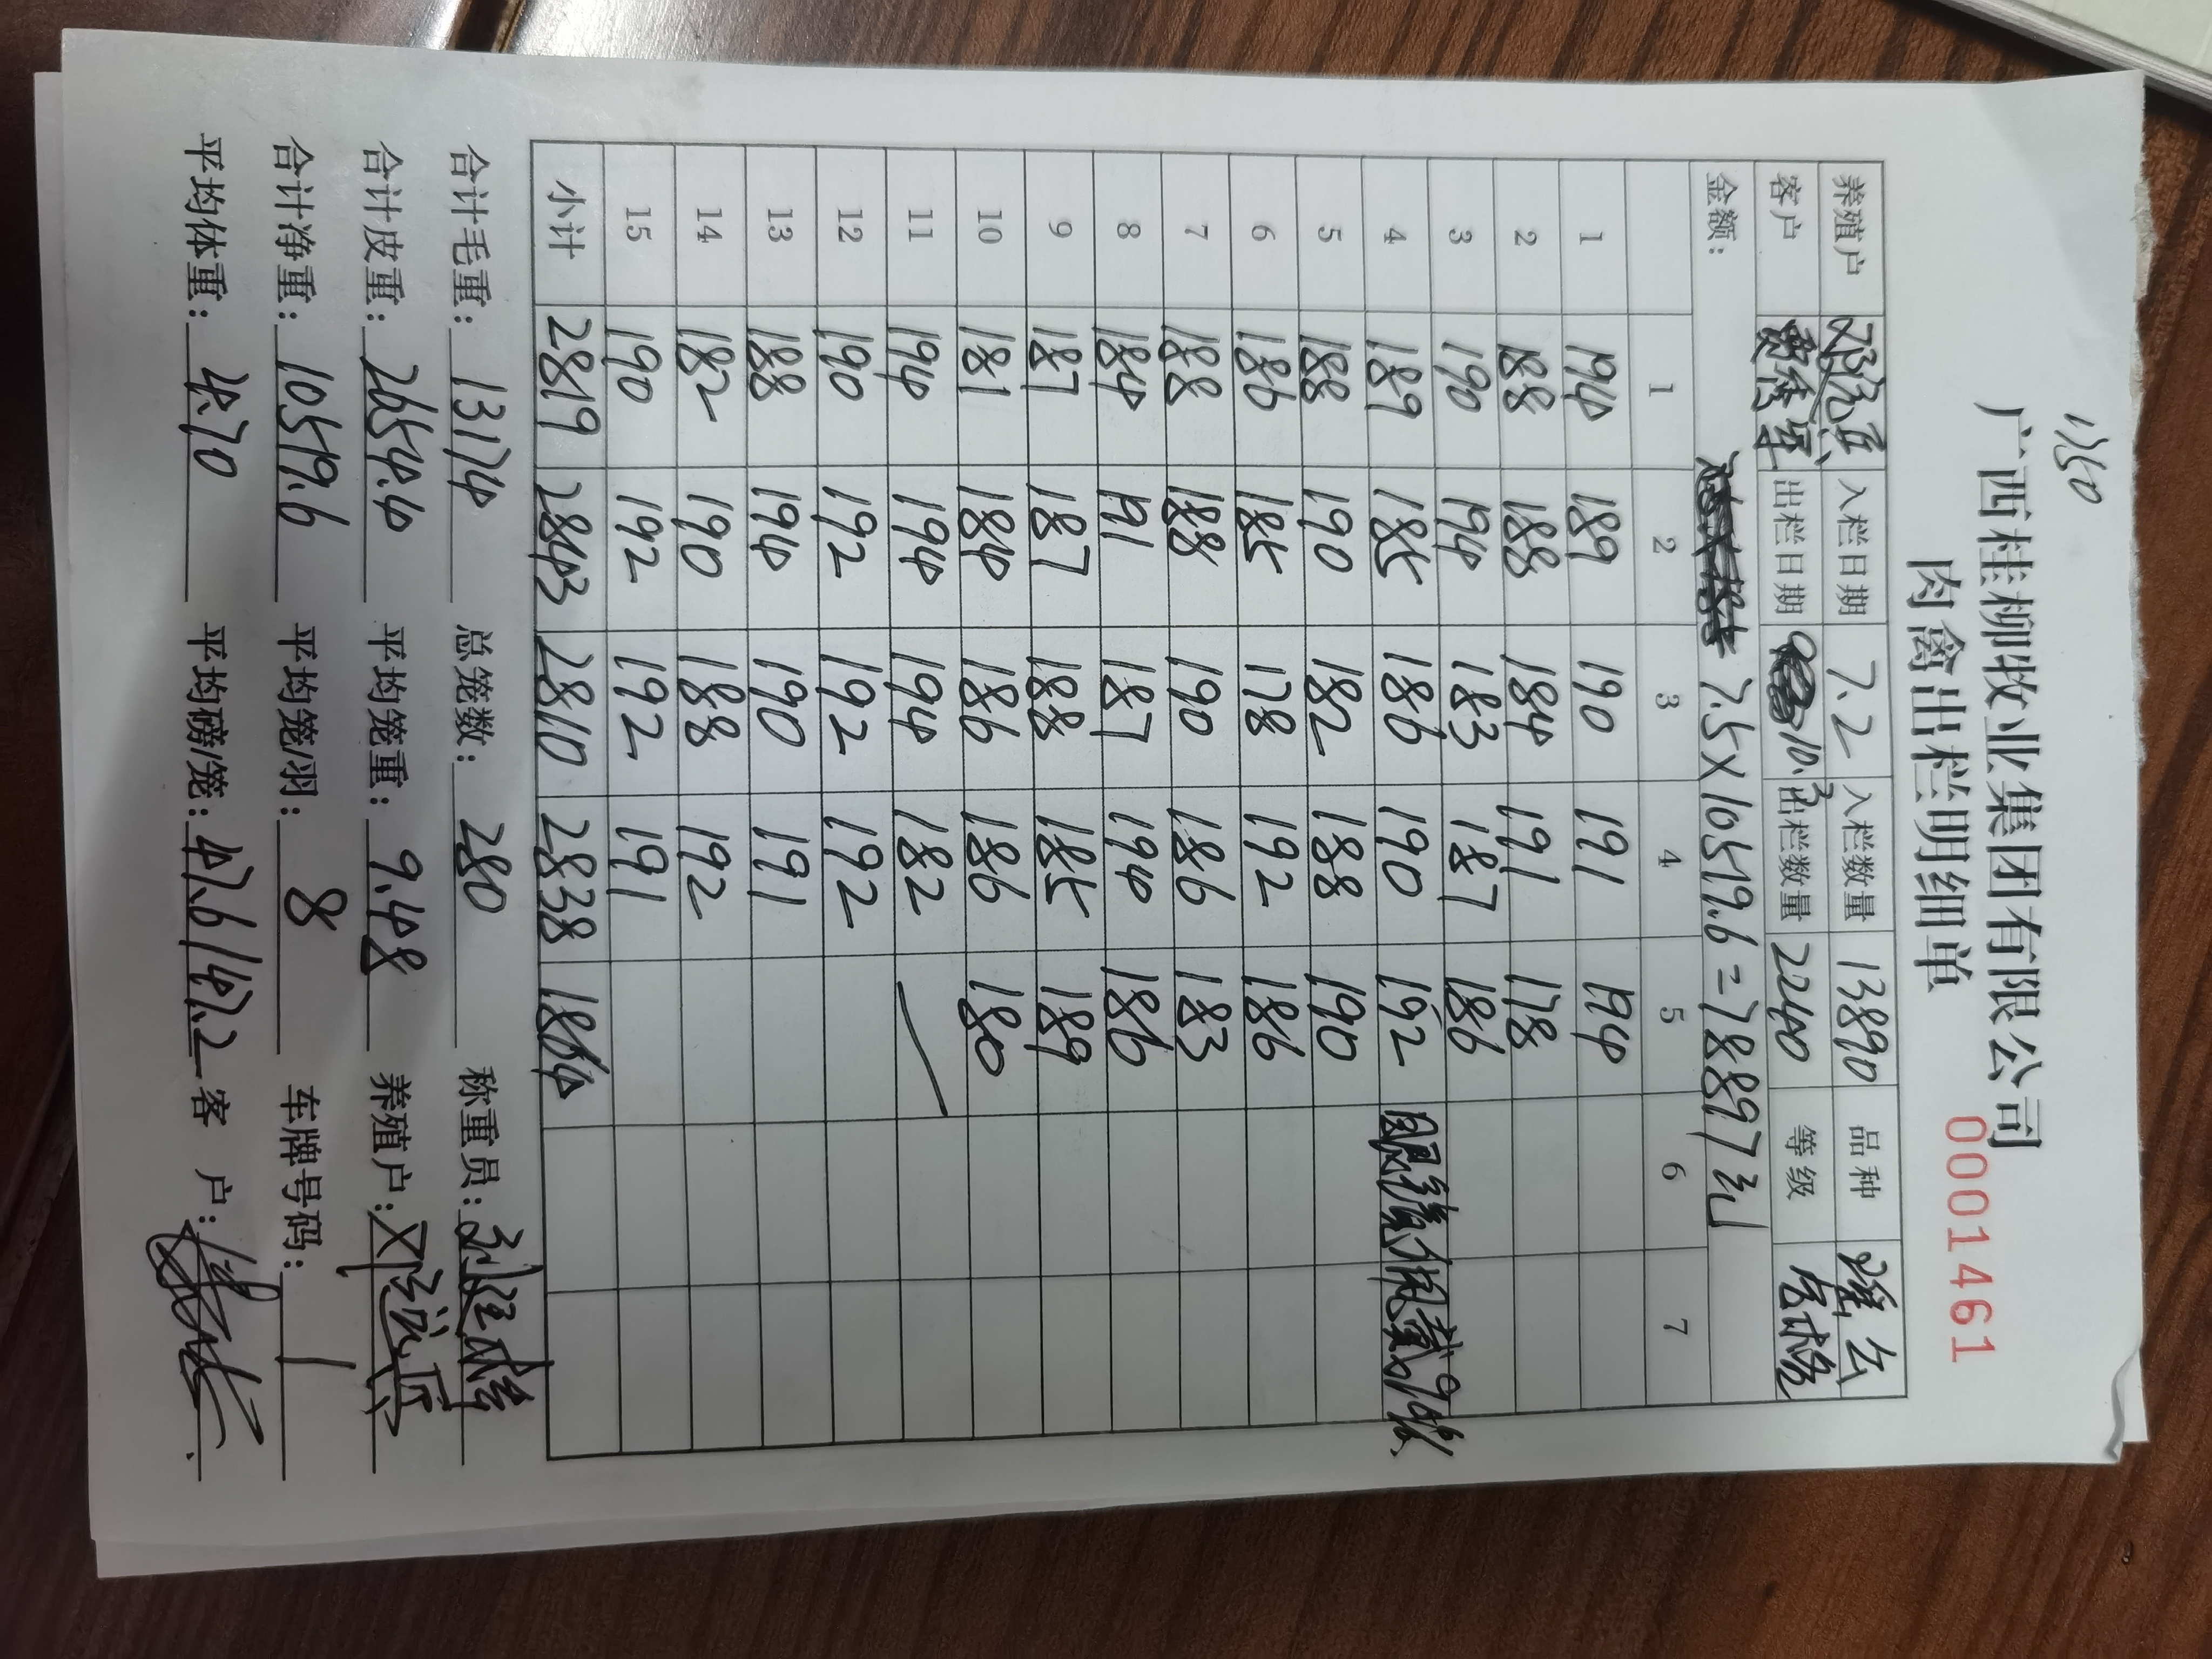 1350
广西桂柳牧业集团有限公司
肉禽出栏明细单
0001461
养殖户 入栏日期 7.2 入栏数量 13890 品种
客户 出栏日期 10.3 出栏数量 22400 等级 合格
金额: 7.5×10519.6=78897元
1 2 3 4 5 6 7
1 194 189 190 191 194
2 188 188 184 191 178
3 190 194 183 187 186
4 189 185 186 190 192
5 188 190 182 188 190
6 186 185 178 192 186
7 188 188 190 186 183
8 184 191 187 194 186
9 187 187 188 185 189
10 181 184 186 186 180
11 194 194 194 182
12 190 192 192 192
13 188 194 190 191
14 182 190 188 192
15 190 192 192 191
小计 2819 2843 2810 2838 1864
合计毛重: 13174 总笼数: 280 称重员:
合计皮重: 2654.4 平均笼重: 9.48 养殖户:
合计净重: 10519.6 平均笼/羽: 8 车牌号码:
平均体重: 4.70 平均磅/笼: 47.6/47.2 客 户: